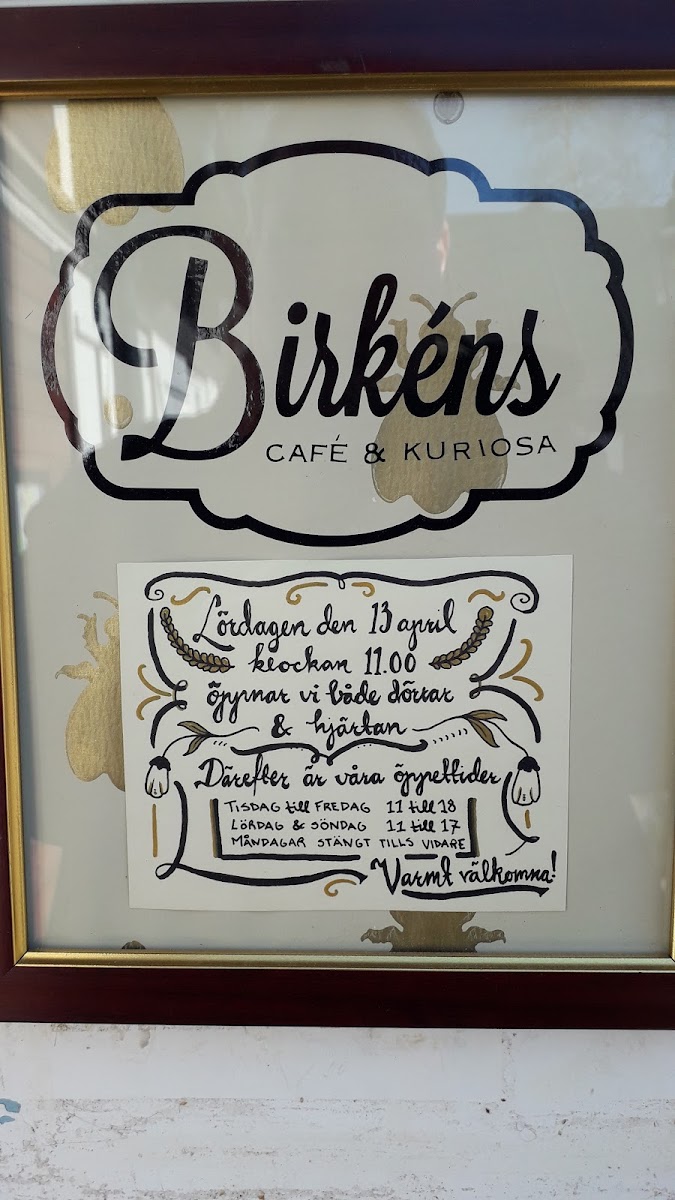 Birkéns
CAFÉ & KURIOSA
Lördagen den 13 april
klockan 11.00
öppnar vi både dörrar
& hjärtan
Därefter är våra öppettider
TISDAG till FREDAG 11 till 18
LÖRDAG & SÖNDAG 11 till 17
MÅNDAGAR STÄNGT TILLS VIDARE
Varmt välkomna!